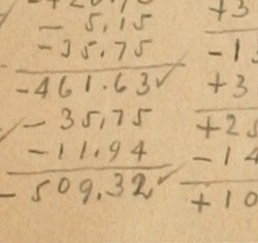 - 5,15 +3
- 35.75 -1
- 461.63✓ +3
- 35,75 +2
- 11.94 -14
- 509.32✓ +10